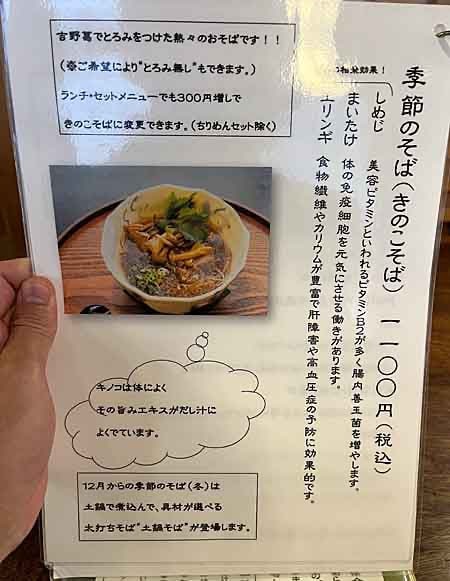 季節のそば(きのこそば) 一一〇〇円(税込)
相乗効果!
しめじ 美容ビタミンといわれるビタミンB2が多く腸内善玉菌を増やします。
まいたけ 体の免疫細胞を元気にさせる働きがあります。
エリンギ 食物繊維やカリウムが豊富で肝障害や高血圧症の予防に効果的です。
吉野葛でとろみをつけた熱々のおそばです!!
(※ご希望により"とろみ無し"もできます。)
ランチ・セットメニューでも300円増しで
きのこそばに変更できます。(ちりめんセット除く)
キノコは体によく
その旨みエキスがだし汁に
よくでています。
12月からの季節のそば(冬)は
土鍋で煮込んで、具材が選べる
太打ちそば"土鍋そば"が登場します。